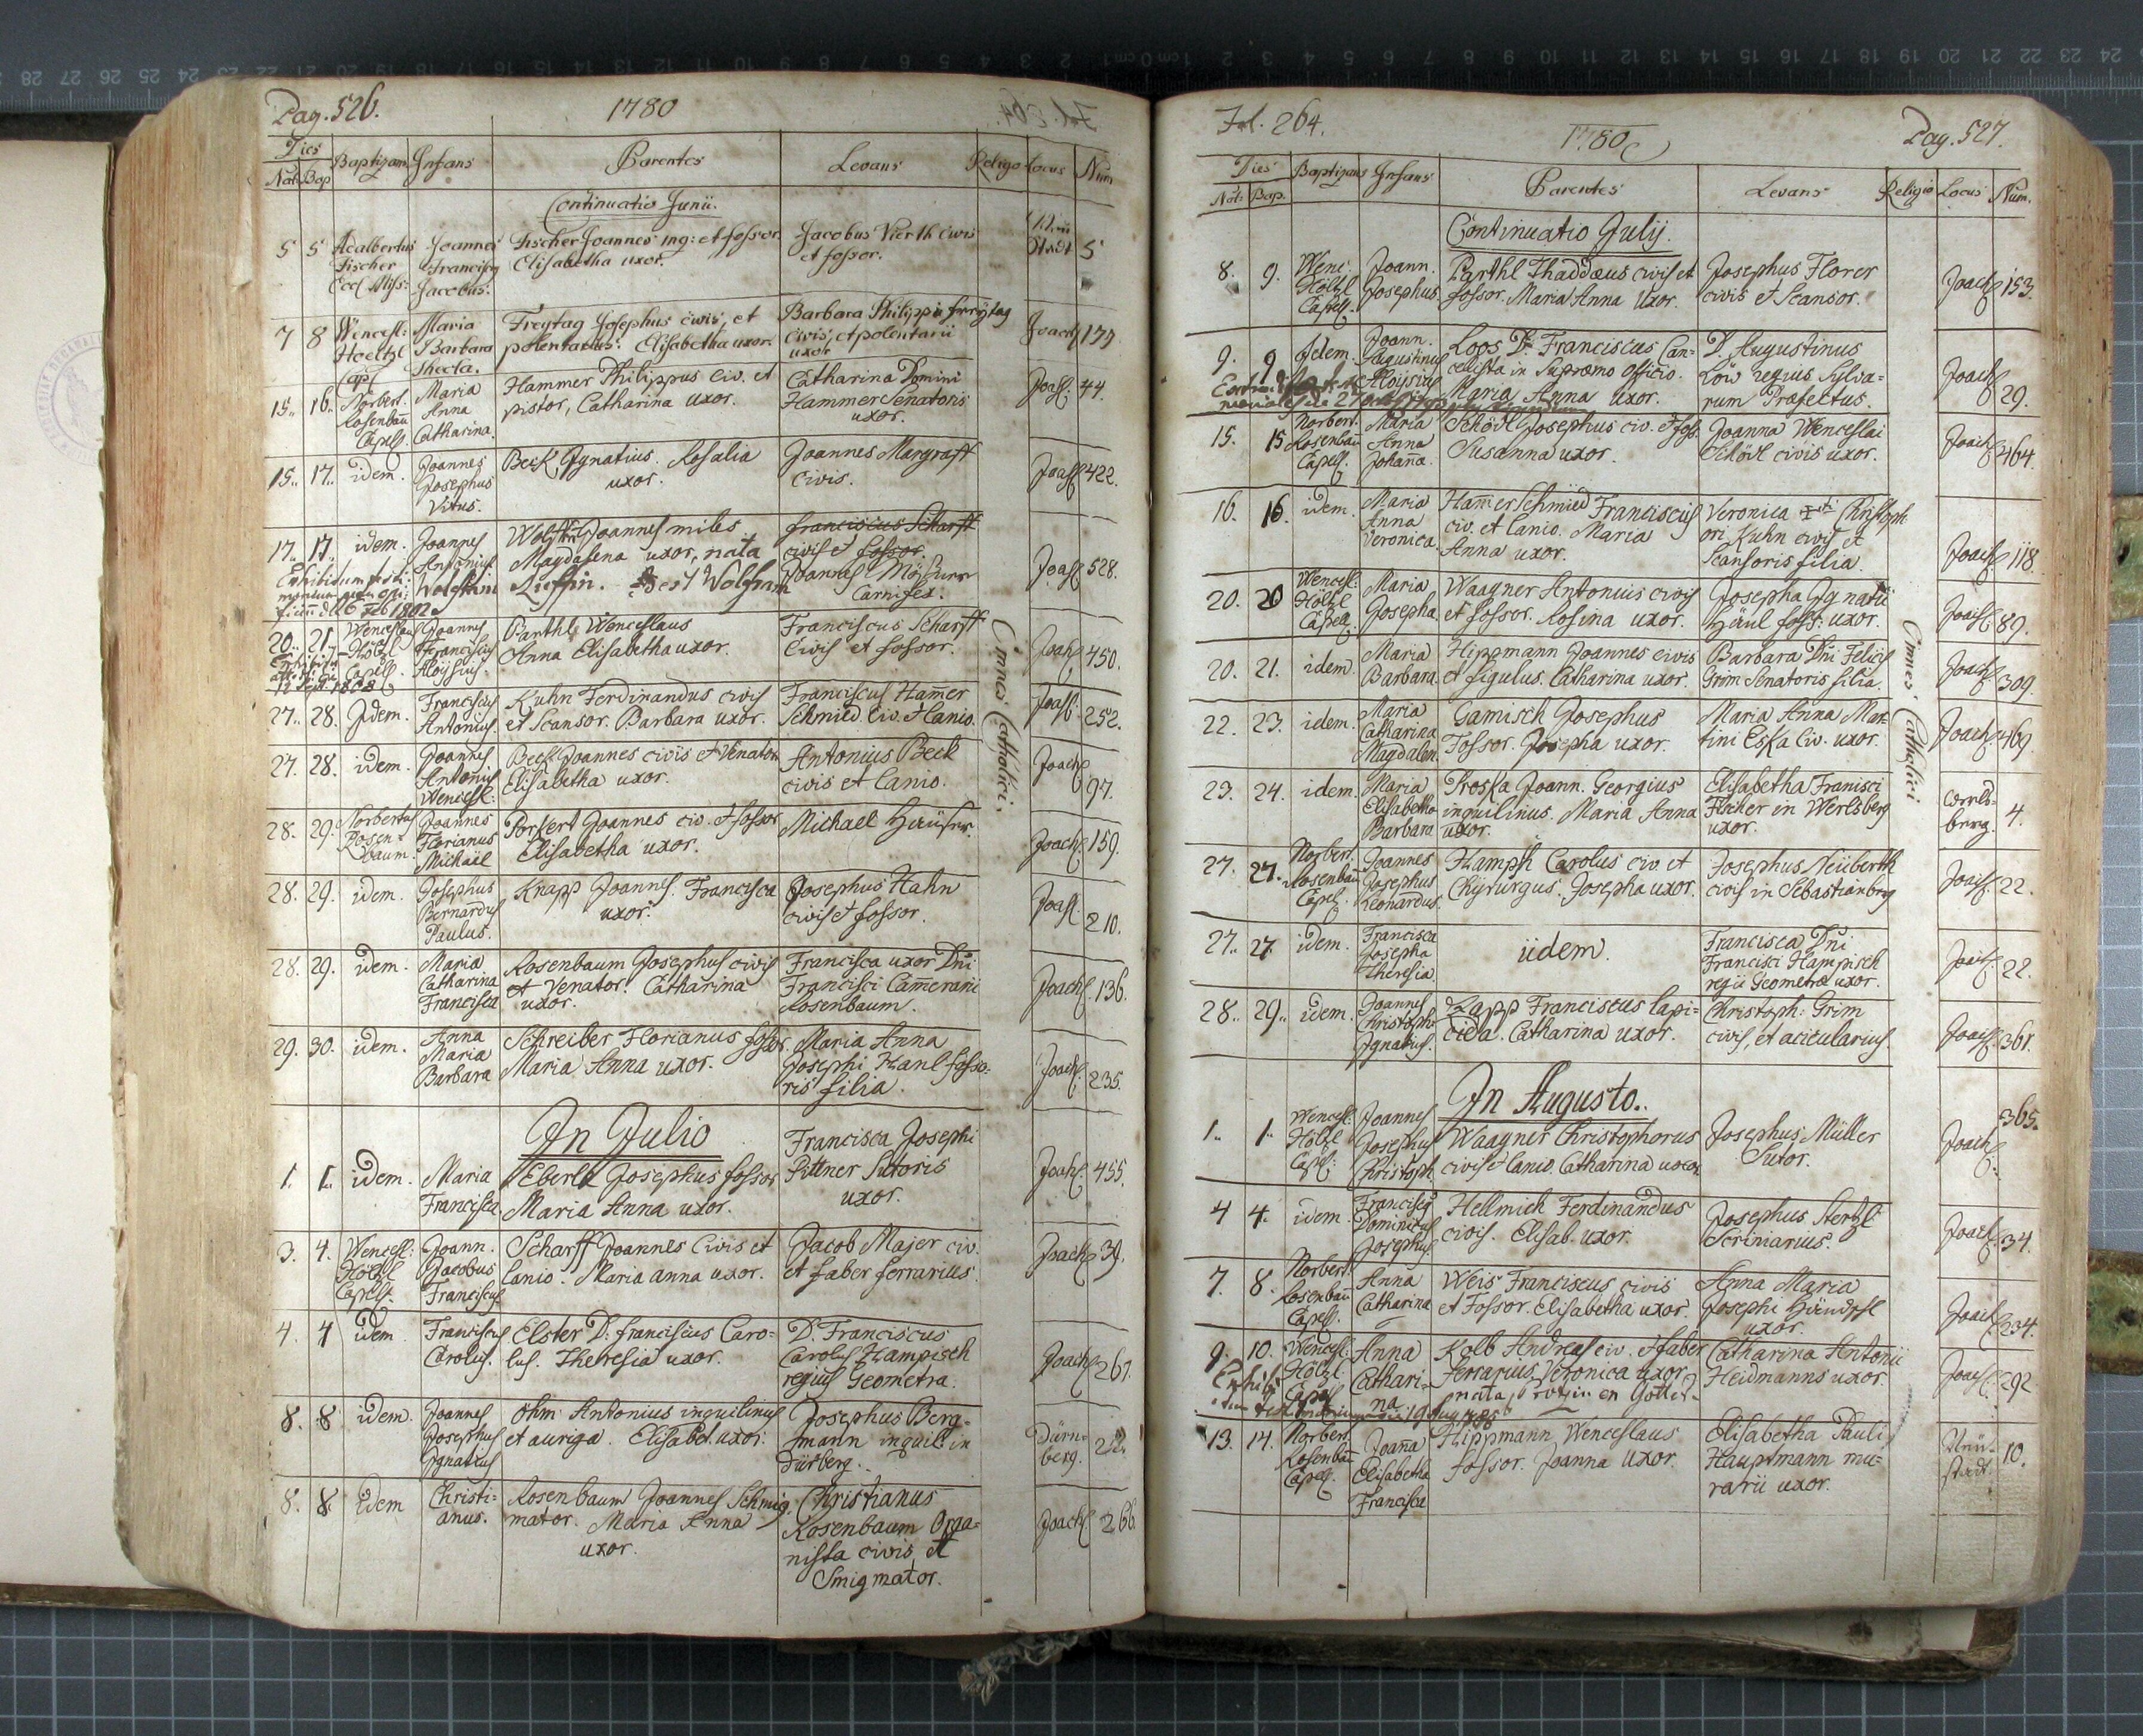 Pag. 526. 1780
Dies Baptizans Infans Parentes Levans Religio Locus Num
Nat. Bap
Continuatio Junii.
5 5 Adalbertus Joannes Fischer Joannes inq: et fossor Jacobus Vierth civis Stadt 5
Fischer Francisc9 Elisabetha uxor. et fossor.
Eccl. Miss: Jacobus.
7 8 Wencesl: Maria Freytag Josephus civis, et Barbara Philippi Freytag Joach 177
Hoeltzl Barbara polentarius. Elisabetha uxor. civis, et polentarii
Cap. Thecla. uxor
15.. 16.. Norbert. Maria Hammer Philippus civ. et Catharina Domini Joach. 44.
Rosenbau Anna pistor, Catharina uxor. Hammer Senatoris
Capell. Catharina. uxor.
15.. 17.. idem. Joannes Beck Ignatius. Rosalia Joannes Margraff Joach 422.
Josephus uxor. Civis.
Vitus.
17. 17. idem. Joannes Joannes miles Franciscus Scharff Joach 528.
Antonius Magdalena uxor, nata civis et fossor.
Wolfram Carnifex.
20.. 21. Wenceslaus Joannes Barthl Wenceslaus Franciscus Scharff Joach 450.
Höltzl Franciscus Anna Elisabetha uxor. Civis et fossor.
Capell. Aloysius.
27.. 28. Idem. Franciscus Kuhn Ferdinandus civis Franciscus Hamer Joach 252.
Antonius. et Scansor. Barbara uxor. Schmied Civ. et lanio.
27. 28. idem. Joannes Beck Joannes civis et Venator Antonius Beck Joach 97.
Antonius Elisabetha uxor. civis et lanio.
Wencesl:
28. 29. Norbertus Joannes Porkert Joannes civ. et fossor Michael Häuser. Joach 159.
Rosen- Florianus Elisabetha uxor.
baum. Michäel
28. 29. idem. Josephus Knapp Joannes. Francisca Josephus Hahn Joach 210.
Bernardus uxor. civis et fossor.
Paulus.
28. 29. idem. Maria Rosenbaum Josephus civis Francisca uxor Dni Joach 136.
Catharina et Venator. Catharina Francisci Camerarii
Francisca uxor. Rosenbaum.
29. 30. idem. Anna Schreiber Florianus fossor. Maria Anna Joach. 235.
Maria Maria Anna uxor. Josephi Hanl fosso=
Barbara ris filia.
In Julio
1. 1. idem. Maria Eberle Josephus fossor Francisca Josephi Joach 455.
Francisca Maria Anna uxor. Pittner Sutoris
uxor.
3. 4. Wencesl: Joann. Scharff Joannes Civis et Jacob Majer civ. Joach 39.
Höltzl Jacobus lanio. Maria anna uxor. et faber ferrarius.
Capell. Franciscus
4. 4 idem Franciscus Elster D: franciscus Caro= D. Franciscus Joach 267.
Carolus. lus. Theresia uxor. Carolus Hampisch
regius Geometra.
8. 8 idem. Joannes Ohm Antonius inquilinus Josephus Berg= Dürn=
Josephus et auriga. Elisabet. uxor. mann inquil: in berg. 22.
Ignatius Dürberg.
8. 8. idem Christi= Rosenbaum Joannes Schmig Christianus Joach 266.
anus. mator. Maria Anna Rosenbaum Orga=
uxor. nista civis, et
Smigmator.
Omnes Catholici.
Fol. 264. 1780 Pag. 527.
Dies Baptizans Infans Parentes Levans Religio Locus Num.
Nat. Bap.
Continuatio Julij.
8. 9. Wenc. Joann. Barthl Thaddæus civis et Josephus Florer Joach 153.
Höltzl Josephus. fossor. Maria Anna Uxor. civis et Scansor.
Capell.
9. 9 Idem. Joann. Loos D: Franciscus Can= D. Augustinus Joach 29.
Augustinus cellista in Supremo Officio. Löw regius Sylva=
Aloysius Maria Anna uxor. rum Præfectus.
15. 15 Norbert. Maria Schödl Josephus civ. et foss. Joanna Wenceslai Joach 464.
Rosenbau Anna Susanna uxor. Schödl civis uxor.
Capell. Johana.
16. 16. idem. Maria Hamerschmied Franciscus Veronica Christoph Joach 118
Anna civ. et lanio. Maria ori Kuhn civis et
Veronica. Anna uxor. Scansoris filia.
20. 20 Wencesl: Maria Waagner Antonius civis Josepha Ignatii Joach. 89.
Höltzl Josepha. et fossor. Rosina uxor. Häul foss. uxor.
Capell.
20. 21. idem. Maria Hippmann Joannes civis Barbara Dni Felicis Joach 309.
Barbara. et figulus. Catharina uxor. Grim Senatoris filia.
22. 23. idem. Maria Gamisch Josephus Maria Anna Mar= Joach. 469.
Catharina Fossor. Josepha uxor. tini Eska Civ. uxor.
Magdalen.
23. 24. idem. Maria Proska Joann. Georgius Elisabetha Francisci Werls=
Elisabetha inquilinus. Maria Anna Fischer in Werlsberg berg. 4.
Barbara uxor. uxor.
27. 27. Norbert. Joannes Hampsh Carolus civ. et Josephus Neüberth Joach 22.
Rosenbau Josephus Chyrurgus. Josepha uxor. civis in Sebastianberg
Capell. Leonardus.
27.. 27 idem. Francisca iidem. Francisca Dni Joach. 22.
Josepha Francisci Hampisch
Theresia. regii Geometræ uxor.
28.. 29.. idem. Joannes Zapp Franciscus lapi= Christoph: Grim Joach 361.
Christoph: cida. Catharina uxor. civis, et acicularius.
Ignatius.
In Augusto.
1.. 1.. Wencesl: Joannes Waagner Christophorus Josephus Müller Joach 365.
Höltzl Josephus civis et lanio. Catharina uxor. Sutor.
Capell: Christoph.
4 4. idem. Francisc9 Hellmich Ferdinandus Josephus Stertzl Joach 34.
Dominicus civis. Elisab. uxor. Scriniarius.
Josephus.
7. 8. Norbert. Anna Weis Franciscus civis Anna Maria Joach 234.
Rosenbau Catharina et Fossor. Elisabetha uxor. Josephi
Capell. uxor.
9. 10. Wencesl: Anna Kolb Andreas civ. et faber Catharina Antonii Joach 292
Höltzl Cathari= ferrarius, Veronica uxor Heidmanns uxor.
Capell na nata
13. 14. Norbert. Joana Hippmann Wenceslaus Elisabetha Pauli Neü= 10.
Rosenbau Elisabetha fossor. Joanna Uxor. Hauptmann mu= stadt.
Capell. Francisca rarii uxor.
Omnes Catholici